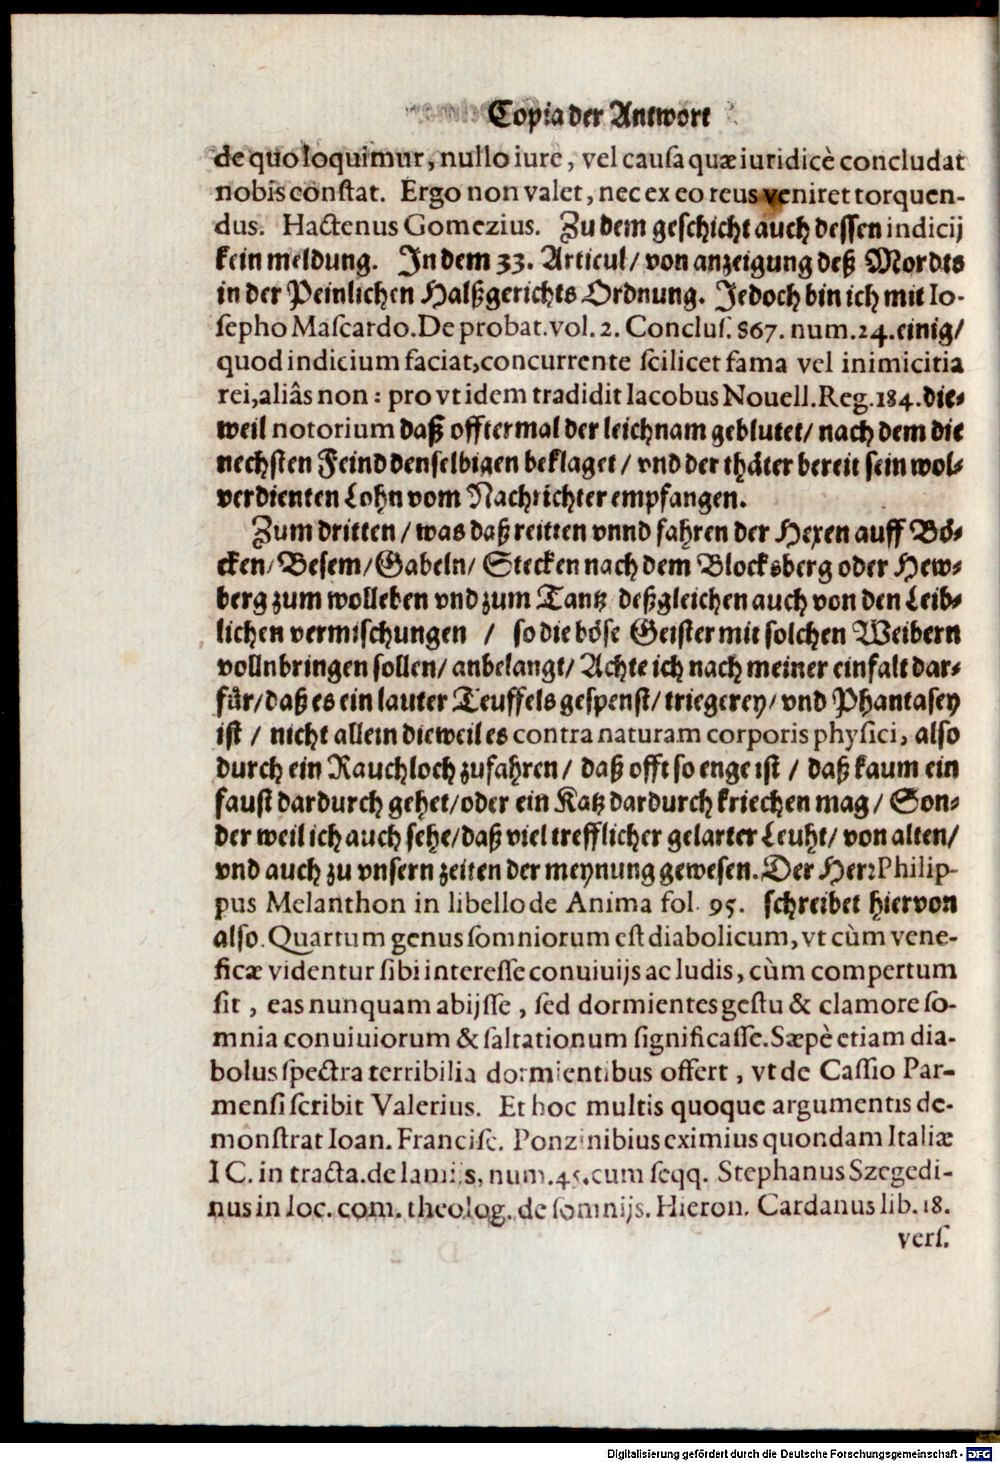 Copia der Antwort
de quo loquimur, nullo iure, vel causa quæ iuridicè concludat
nobis constat. Ergo non valet, nec ex eo reus veniret torquen-
dus. Hactenus Gomezius. Zu dem geschicht auch dessen indicij
kein meldung. In dem 33. Articul/ von anzeigung deß Mordts
in der Peinlichen Halßgerichts Ordnung. Jedoch bin ich mit Io-
sepho Mascardo. De probat. vol. 2. Conclus. 867. num. 24. einig/
quod indicium faciat, concurrente scilicet fama vel inimicitia
rei, aliâs non: pro vt idem tradidit Iacobus Nouell. Reg. 184. die-
weil notorium daß offtermal der leichnam geblutet/ nach dem die
nechsten Feind denselbigen beklaget/ vnd der thäter bereit sein wol-
verdienten Lohn vom Nachrichter empfangen.
Zum dritten/ was daß reitten vnnd fahren der Hexen auff Bö-
cken/ Besem/ Gabeln/ Stecken nach dem Blocksberg oder Hew-
berg zum wolleben vnd zum Tantz deßgleichen auch von den Leib-
lichen vermischungen / so die böse Geister mit solchen Weibern
vollnbringen sollen/ anbelangt/ Achte ich nach meiner einfalt dar-
für/ daß es ein lauter Teuffels gespenst/ triegerey/ vnd Phantasey
ist / nicht allein dieweil es contra naturam corporis physici, also
durch ein Rauchloch zufahren/ daß offt so enge ist / daß kaum ein
faust dardurch gehet/ oder ein Katz dardurch kriechen mag/ Son-
der weil ich auch sehe/ daß viel trefflicher gelarter Leuht/ von alten/
vnd auch zu vnsern zeiten der meynung gewesen. Der Herr Philip-
pus Melanthon in libello de Anima fol. 95. schreibet hiervon
also. Quartum genus somniorum est diabolicum, vt cùm vene-
ficæ videntur sibi interesse conuiuijs ac ludis, cùm compertum
sit, eas nunquam abijsse, sed dormientes gestu & clamore so-
mnia conuiuiorum & saltationum significasse. Sæpè etiam dia-
bolus spectra terribilia dormientibus offert, vt de Cassio Par-
mensi scribit Valerius. Et hoc multis quoque argumentis de-
monstrat Ioan. Francisc. Ponzinibius eximius quondam Italiæ
IC. in tracta. de lamijs, num. 45. cum seqq. Stephanus Szegedi-
nus in loc. com. theolog. de somnijs. Hieron. Cardanus lib. 18.
vers.
Digitalisierung gefördert durch die Deutsche Forschungsgemeinschaft - DFG